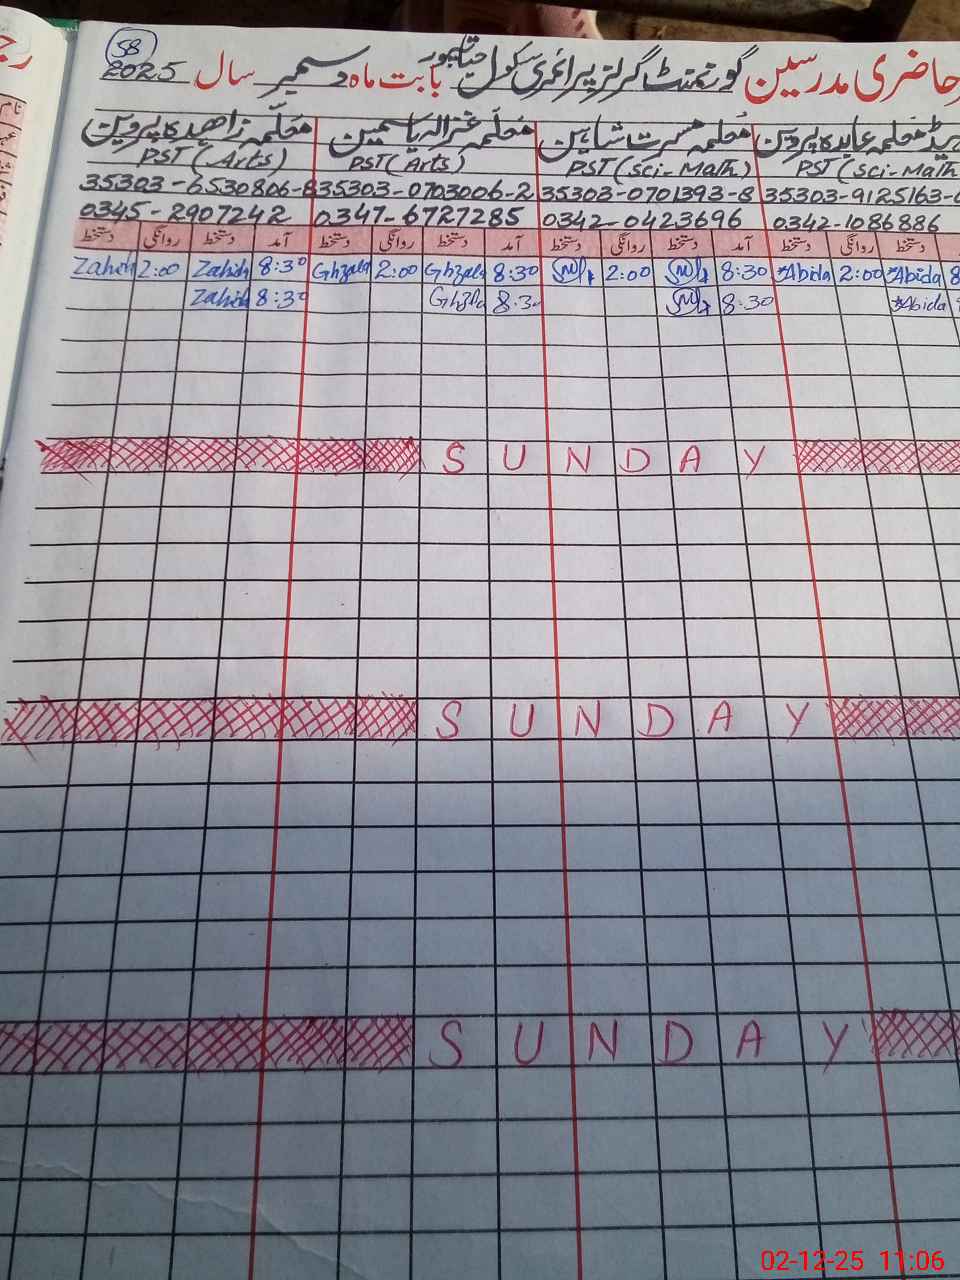 58
حاضری مدرسین گورنمنٹ گرلز پرائمری سکول حیاتپور بابت ماہ دسمبر سال 2025
ہیڈ معلمہ عابدہ پروین معلمہ مسرت شاہین معلمہ غزالہ یاسمین معلمہ زاھدہ پروین
PST (Arts) PST (Arts) PST (Sci-Math) PST (Sci-Math
35303-6530806-8 35303-0703006-2 35303-0701393-8 35303-9125163-
0345-2907242 0347-6727285 0342-0423696 0342-1086886
دستخط روانگی دستخط آمد دستخط روانگی دستخط آمد دستخط روانگی دستخط آمد دستخط روانگی دستخط
Zahida 2:00 Zahida 8:30 Ghzala 2:00 Ghzala 8:30 2:00 8:30 Abida 2:00 Abida 8
Zahida 8:30 Ghzala 8:30 8:30 Abida
SUNDAY
SUNDAY
SUNDAY
02-12-25 11:06